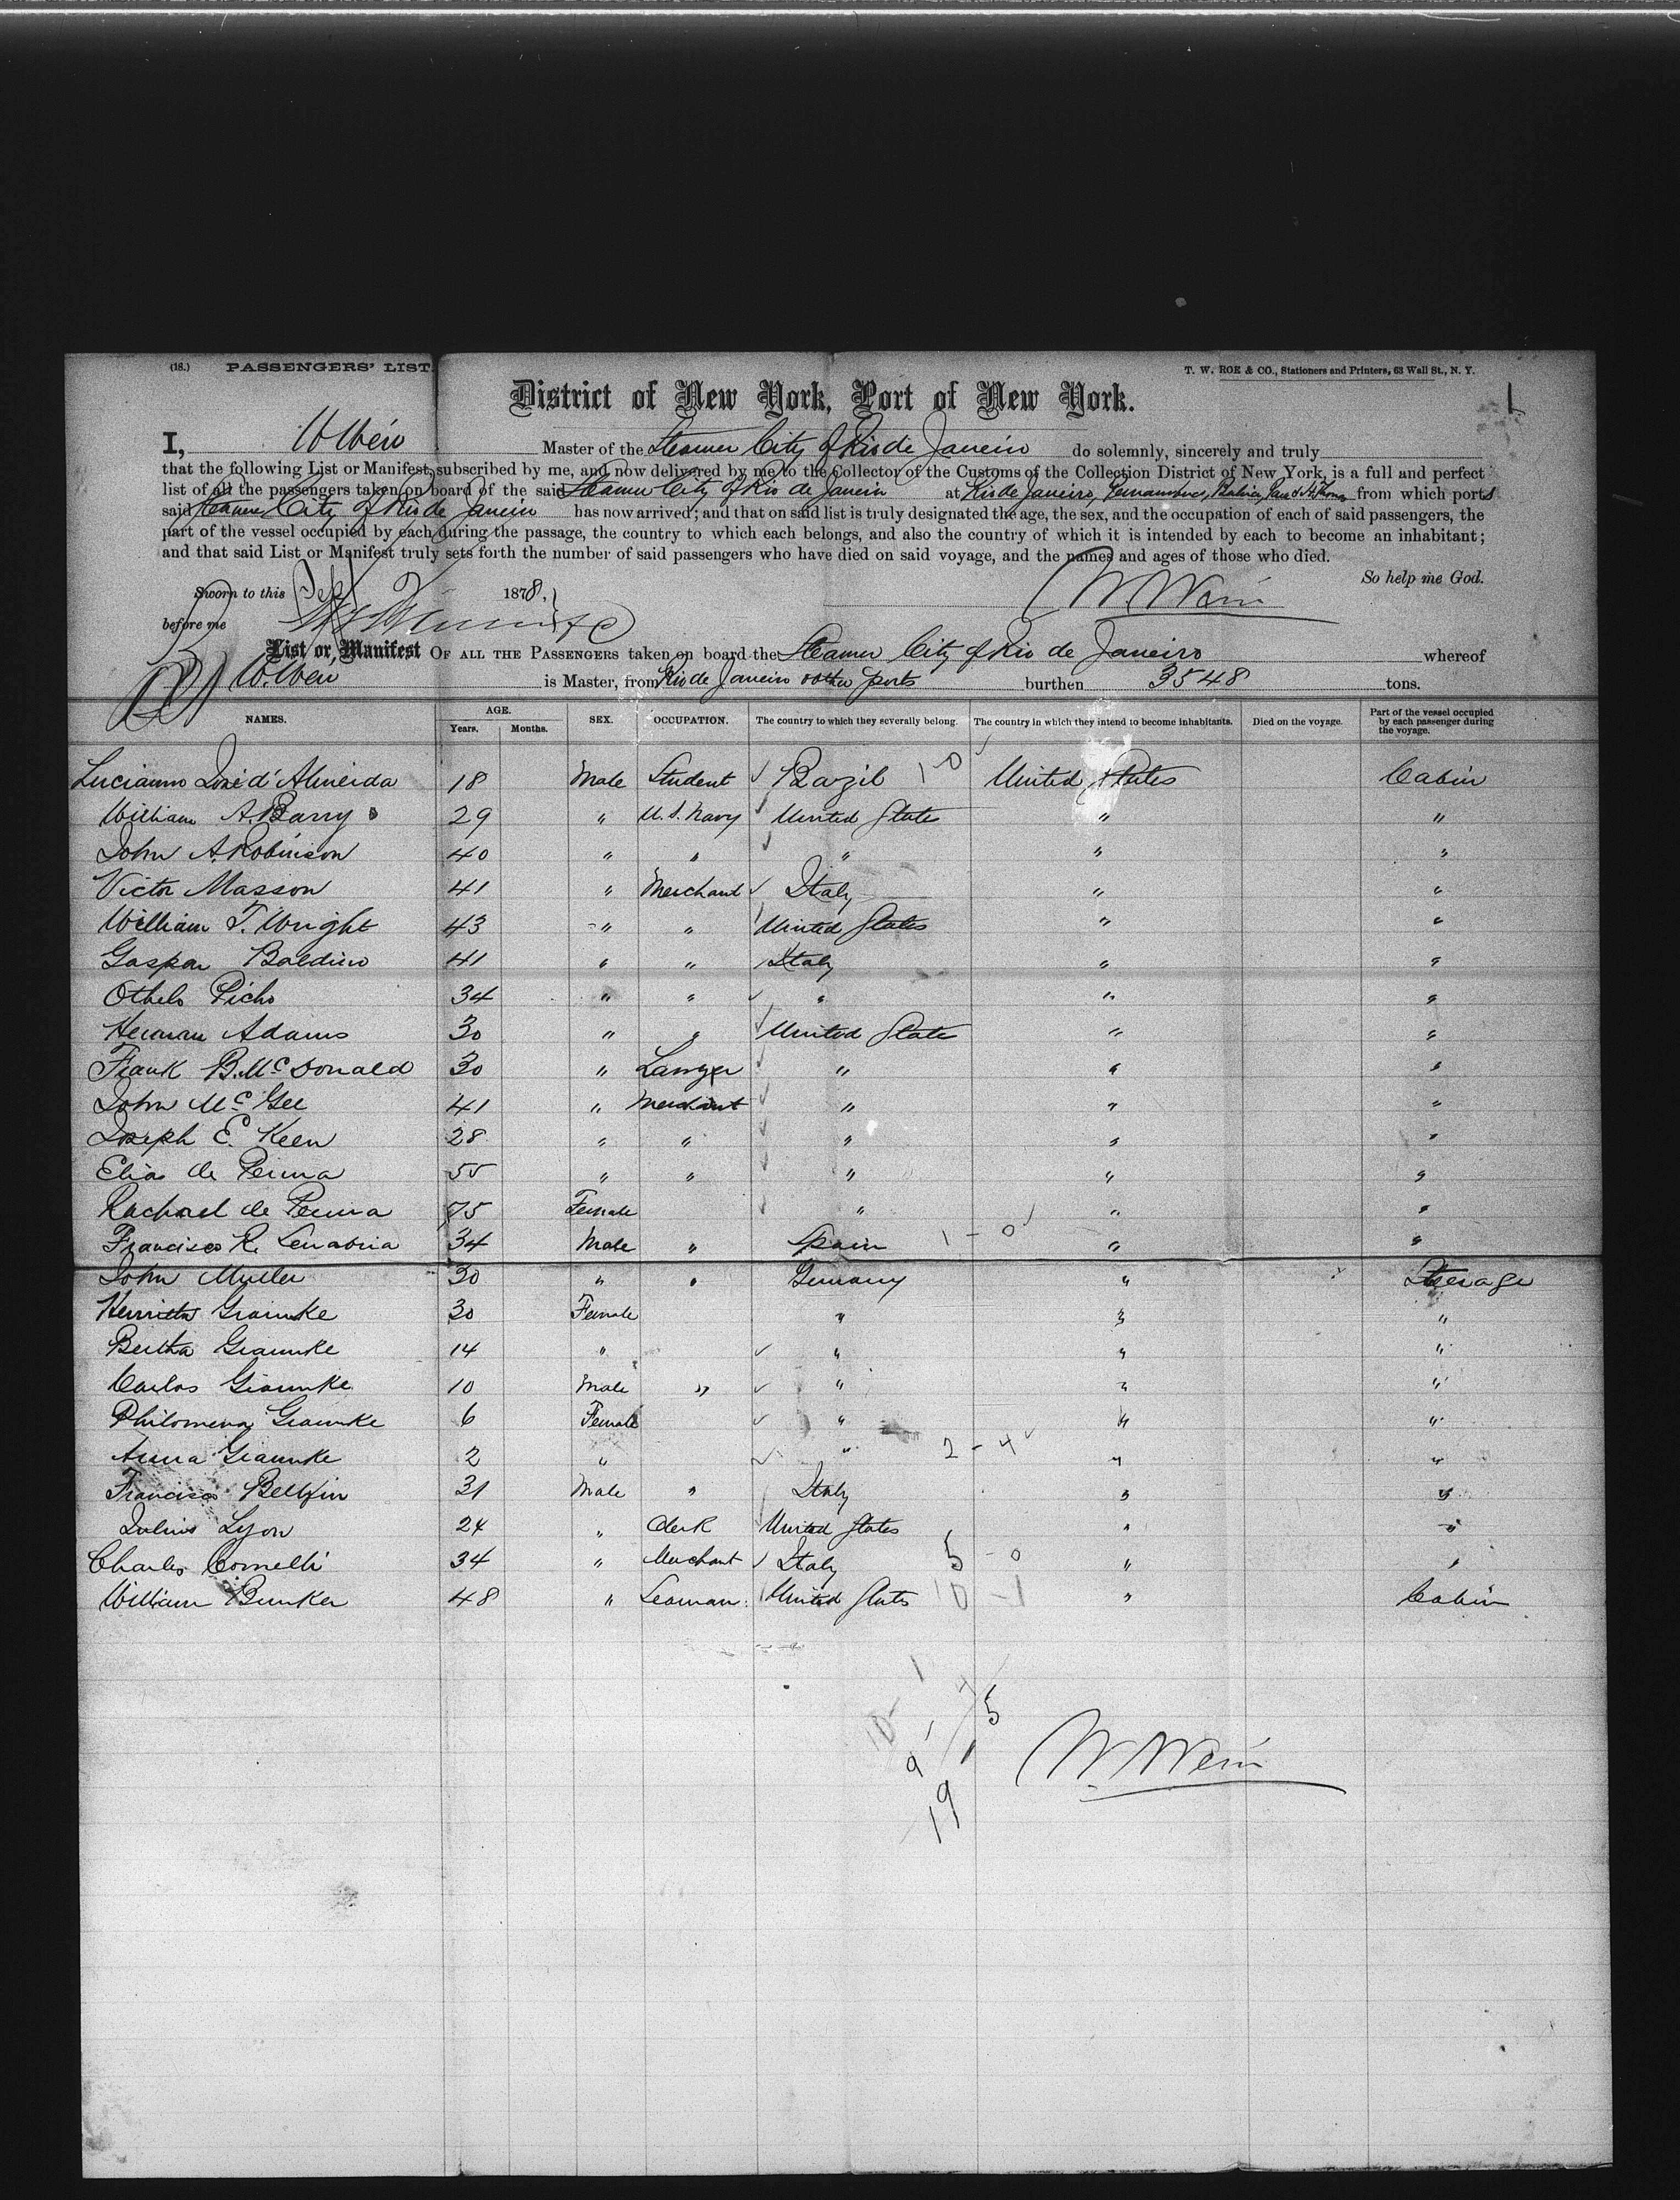 (18.) PASSENGERS' LIST.
T. W. ROE & CO., Stationers and Printers, 63 Wall St., N. Y.
1
District of New York, Port of New York.
I, W Weir Master of the Steamer City of Rio de Janeiro do solemnly, sincerely and truly
that the following List or Manifest, subscribed by me, and now delivered by me to the Collector of the Customs of the Collection District of New York, is a full and perfect
list of all the passengers taken on board of the said Steamer City of Rio de Janeiro at Rio de Janeiro, Pernambuco, Bahia, Para & St Thomas from which ports
said Steamer City of Rio de Janeiro has now arrived; and that on said list is truly designated the age, the sex, and the occupation of each of said passengers, the
part of the vessel occupied by each during the passage, the country to which each belongs, and also the country of which it is intended by each to become an inhabitant;
and that said List or Manifest truly sets forth the number of said passengers who have died on said voyage, and the names and ages of those who died.
So help me God.
Sworn to this Sept 1878,
before me
W Weir
List or Manifest OF ALL THE PASSENGERS taken on board the Steamer City of Rio de Janeiro whereof
W. Weir is Master, from Rio de Janeiro & other ports burthen 3548 tons.
NAMES. AGE. Years. Months. SEX. OCCUPATION. The country to which they severally belong. The country in which they intend to become inhabitants. Died on the voyage. Part of the vessel occupied by each passenger during the voyage.
Lucianno José d'Almeida 18 Male Student ✓ Brazil 1 0 ✓ United States Cabin
William A. Barry 29 " U. S. Navy ✓ United State " "
John A. Robinson 40 " " ✓ " " "
Victor Masson 41 " Merchant ✓ Italy " "
William T. Wright 43 " " United States " "
Gaspar Baldino 41 " " Italy " "
Othelo Picho 34 " " ✓ " " "
Herman Adams 30 " " ✓ United State " "
Frank B. McDonald 30 " Lawyer ✓ " " "
John McGee 41 " Merchant ✓ " " "
Joseph E. Keen 28 " " ✓ " " "
Elias de Penna 55 " " ✓ " " "
Rachael de Penna 75 Female ✓ " " "
Francisco R. Senabria 34 Male " Spain 1 - 0 ✓ " "
John Muller 30 " " Germany " Steerage
Henrietta Graunke 30 Female " " "
Bertha Graunke 14 " ✓ " " "
Carlos Graunke 10 Male " ✓ " " "
Philomena Graunke 6 Female ✓ " " "
Anna Graunke 2 " ✓ " 2 - 4 ✓ " "
Francisco 31 Male " Italy " "
Julius Lyon 24 " Clerk United States " "
Charles Cornelli 34 " Merchant ✓ Italy 5 - 0 " "
William Bunker 48 " Seaman United States 10 - 1 " Cabin
10 - 1
9 1
5
19
W. Weir